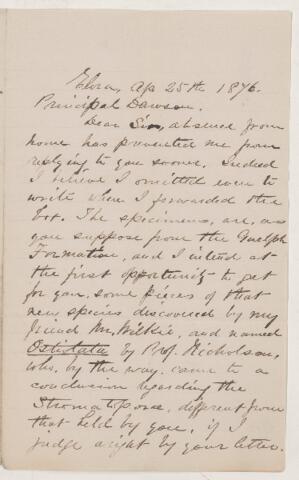 Elora, Ap 25th 1876.
Principal Dawson.
Dear Sir, absence from
home has prevented me from
replying to you sooner. Indeed
I believe I omitted even to
write when I forwarded the
box. The specimens, are, as
you suppose from the Guelph
Formation, and I intend at
the first opportunity to get
for you, some pieces of that
new species discovered by my
friend Mr. Wilkie, and named
Ostiolata by Prof. Nicholson,
who, by the way, came to a
conclusion regarding the
Stromatopora, different from
that held by you, if I
judge aright by your letter.